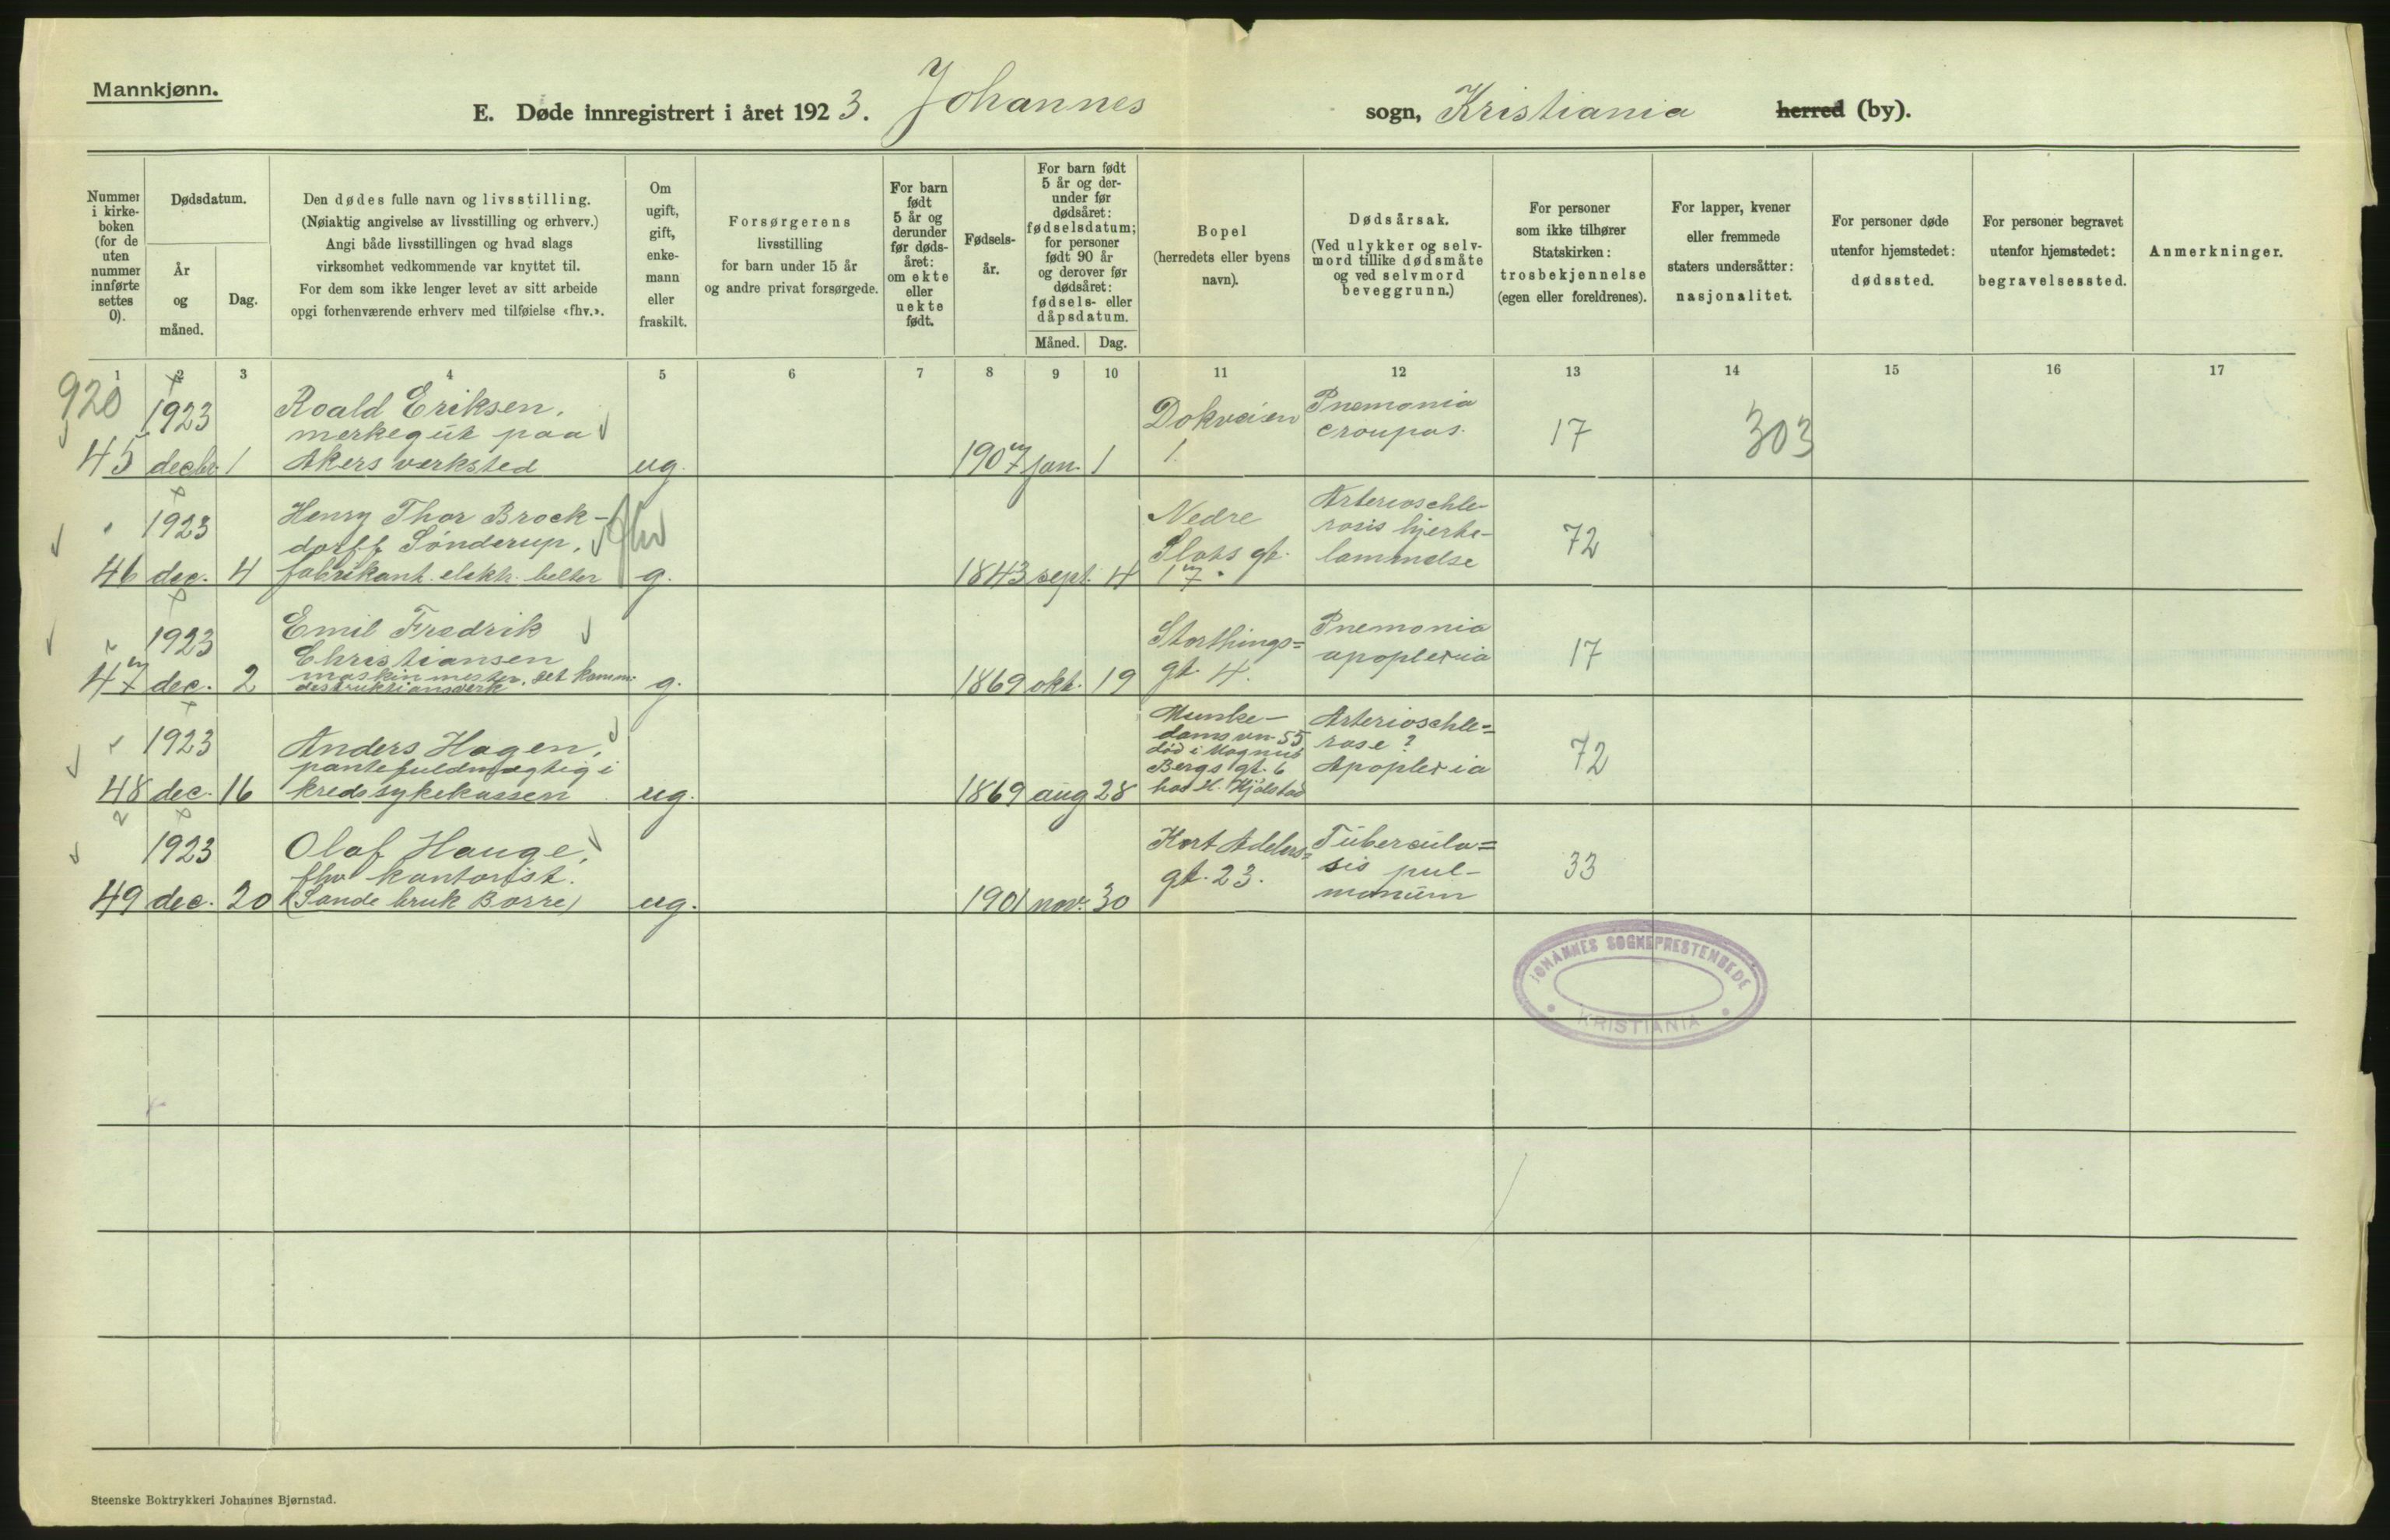 Mannkjønn.
E. Døde innregistrert i året 1923. Johannes sogn, Kristiania herred (by).
Nummer i kirkeboken (for de uten nummer innførte settes 0).
Dødsdatum.
År og måned.
Dag.
Den dødes fulle navn og livsstilling.
(Nøiaktig angivelse av livsstilling og erhverv.)
Angi både livsstillingen og hvad slags
virksomhet vedkommende var knyttet til.
For dem som ikke lenger levet av sitt arbeide
opgi forhenværende erhverv med tilføielse «fhv.».
Om ugift, gift, enkemann eller fraskilt.
Forsørgerens
livsstilling
for barn under 15 år
og andre privat forsørgede.
For barn født 5 år og derunder før dødsåret: om ekte eller uekte født.
Fødselsår.
For barn født 5 år og derunder før dødsåret: fødselsdatum; for personer født 90 år og derover før dødsåret: fødsels- eller dåpsdatum.
Måned. Dag.
Bopel
(herredets eller byens
navn).
Dødsårsak.
(Ved ulykker og selvmord tillike dødsmåte og ved selvmord beveggrunn.)
For personer
som ikke tilhører
Statskirken:
trosbekjennelse
(egen eller foreldrenes).
For lapper, kvener
eller fremmede
staters undersåtter:
nasjonalitet.
For personer døde
utenfor hjemstedet:
dødssted.
For personer begravet
utenfor hjemstedet:
begravelsessted.
Anmerkninger.
1 2 3 4 5 6 7 8 9 10 11 12 13 14 15 16 17
920 1923 Roald Eriksen, Dokveien Pnemonia
merkegut paa croupøs. 17 303
45 decbr 1 Akers verksted ug. 1907 jan. 1 1.
1923 Henry Thor Brock- Nedre Arterioschle-
dorff Sönderup, fhv Slots gt. rosis hjerte- 72
46 dec. 4 fabrikant elektr. belter g. 1843 sept. 4 17. lammelse
1923 Emil Fredrik Storthings= Pnemonia
Christiansen gt. 4. apoplexia 17
maskinmester, det komm.
47 dec. 2 destruktionsverk g. 1869 okt. 19
1923 Anders Hagen, Munke- Arterioschle=
pantefuldmægtig i dams vn 55 rose? 72
død i Magnus
Bergs gt. 6 Apoplexia
48 dec. 16 kredssykekassen ug. 1869 aug 28 hos H. Hjelstad
1923 Olaf Hauge, Kort Adelers= Tüberculo=
fhv kontorist. gt. 23. sis pul- 33
49 dec. 20 (Sande bruk Borre) ug. 1901 nov. 30 monum
JOHANNES SOGNEPRESTEMBEDE
KRISTIANIA
Steenske Boktrykkeri Johannes Bjørnstad.